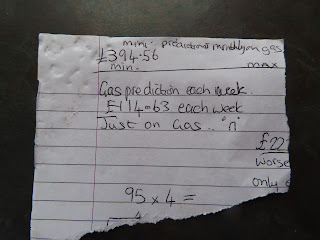 mini. prediction monthly on gas.
£394.56
min. max
Gas prediction each week.
£114=63 each week
Just on Gas.. "n"
£22
worse
only
95 x 4 =
4